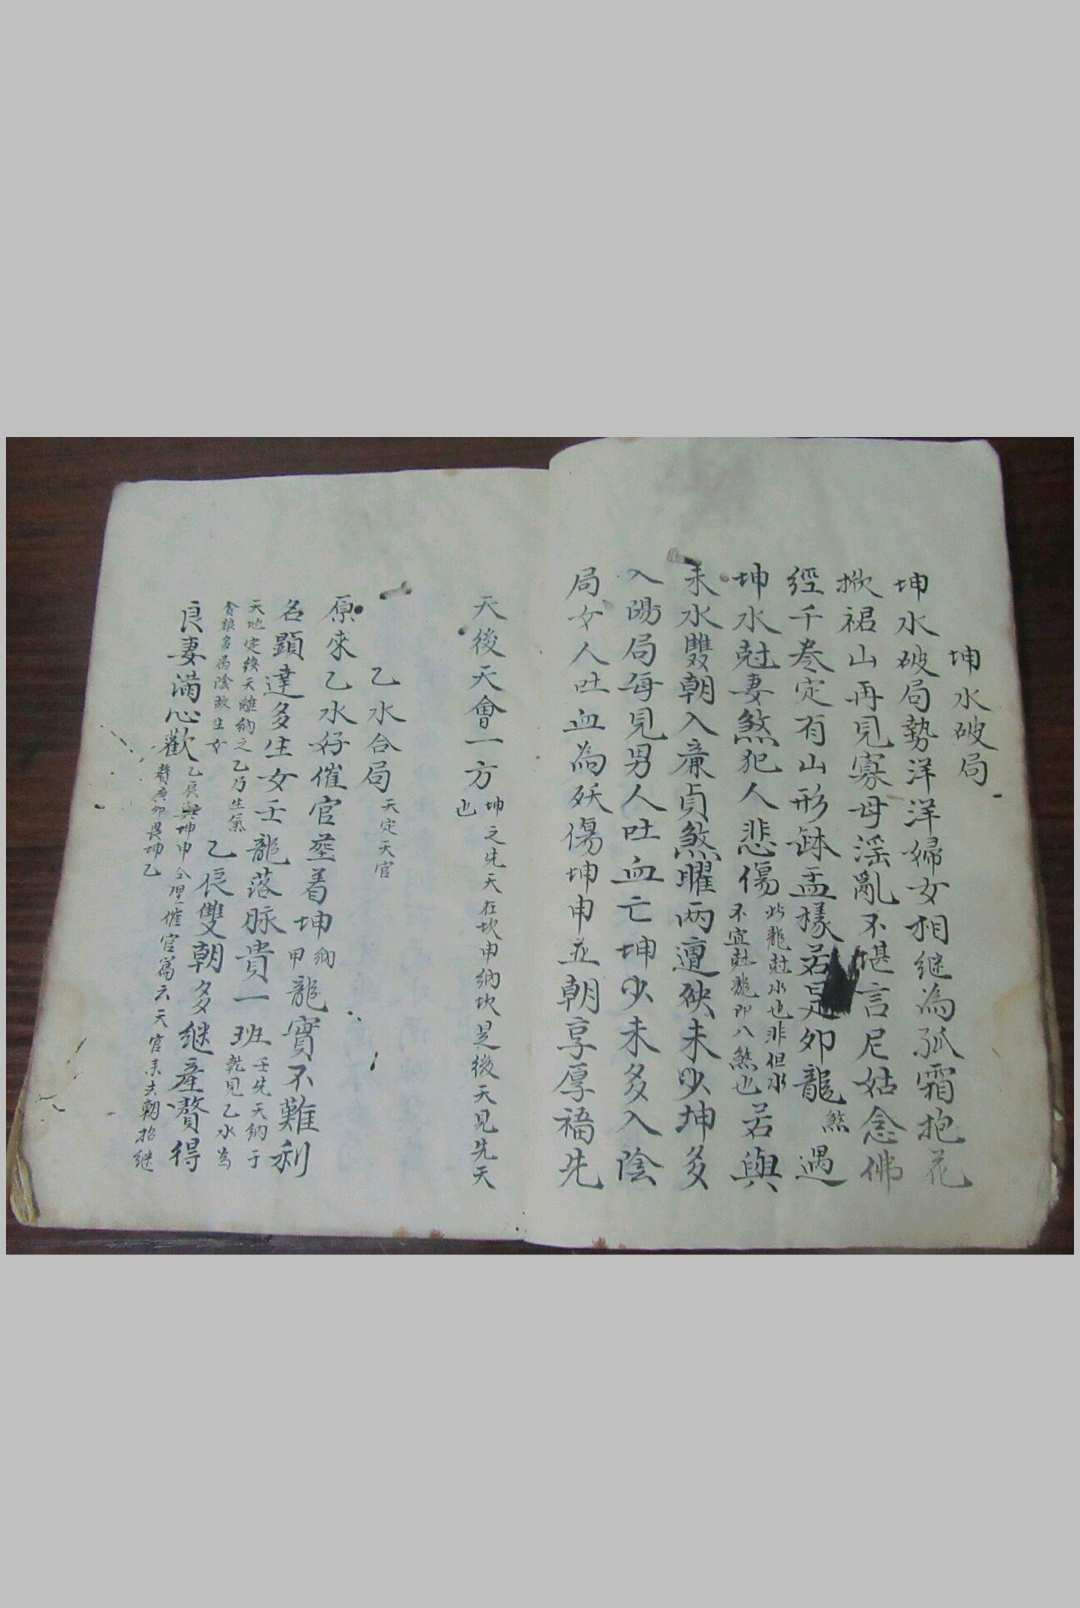 坤水破局
坤水破局勢洋洋婦女相继為孤霜抱花
掀裙山再見寡母淫亂不堪言尼姑念佛
經千卷定有山形缽盂樣若是卯龍煞遇
坤水尅妻煞犯人悲傷
此龍尅水也非但水
不宜尅龍即八煞也
若與
未水雙朝入廉貞煞曜兩邅殃未少坤多
入陽局每見男人吐血亡坤少未多入陰
局女人吐血為殀傷坤申並朝享厚福先
天後天會一方
坤之先天在坎申納坎是後天見先天
也
乙水合局
天定天官
原來乙水好催官塟着坤
納
甲
龍實不難利
名顕達多生女壬龍落脉貴一班
壬先天納于
乾見乙水為
天地定後天離納之乙乃生氣
貪狼為陰故生女
乙辰雙朝多继產贅得
良妻滿心歡
乙辰與坤申合理催官篇云天官未去朝招继
贅庚卯畏坤乙